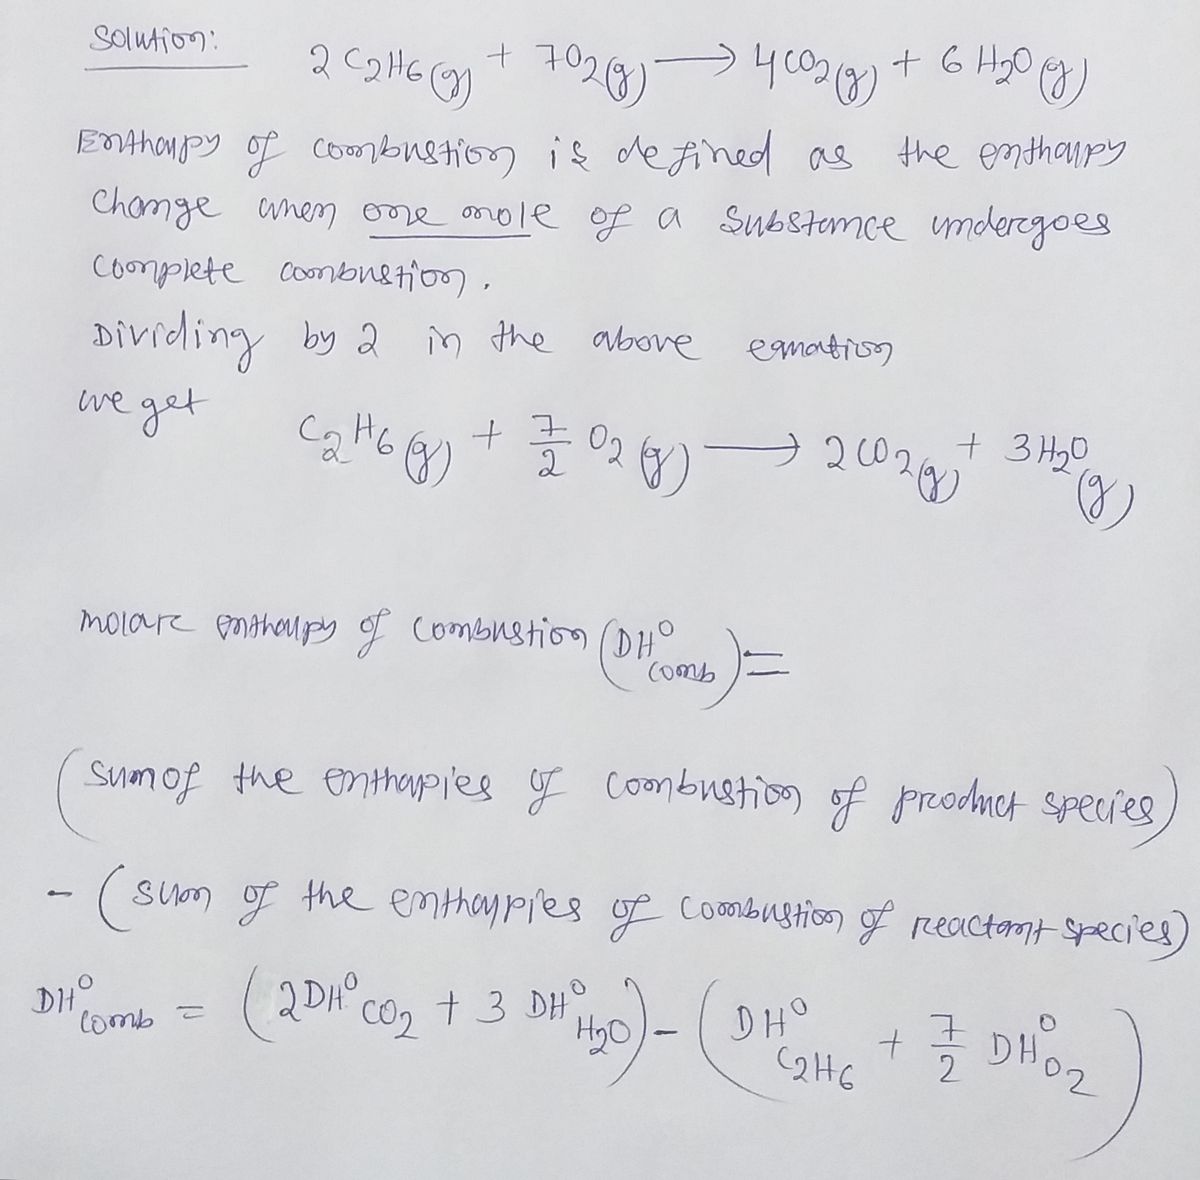 Solution:
2 C2H6(g) + 7O2(g) → 4CO2(g) + 6 H2O(g)
Enthalpy of combustion is defined as the enthalpy
change when one mole of a substance undergoes
complete combustion.
Dividing by 2 in the above equation
we get
C2H6(g) + 7/2 O2(g) → 2CO2(g) + 3H2O(g)
molar enthalpy of combustion (DH°comb) =
(sum of the enthapies of combustion of product species)
- (sum of the enthalpies of combustion of reactant species)
DH°comb = (2DH°CO2 + 3 DH°H2O) - (DH°C2H6 + 7/2 DH°O2)